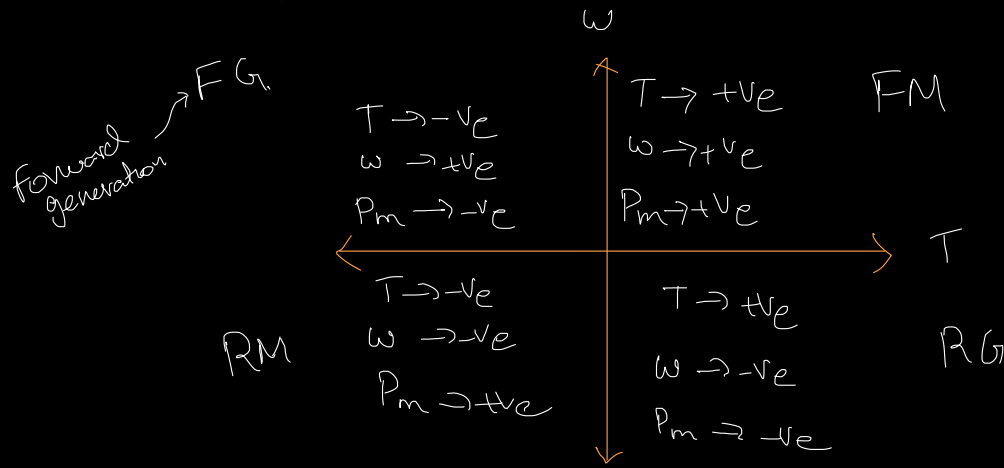 ω
FG
Forward
generation
T → -ve
ω → +ve
Pm → -ve
T → +ve
ω → +ve
Pm → +ve
FM
T
T → -ve
ω → -ve
Pm → +ve
RM
T → +ve
ω → -ve
Pm → -ve
RG